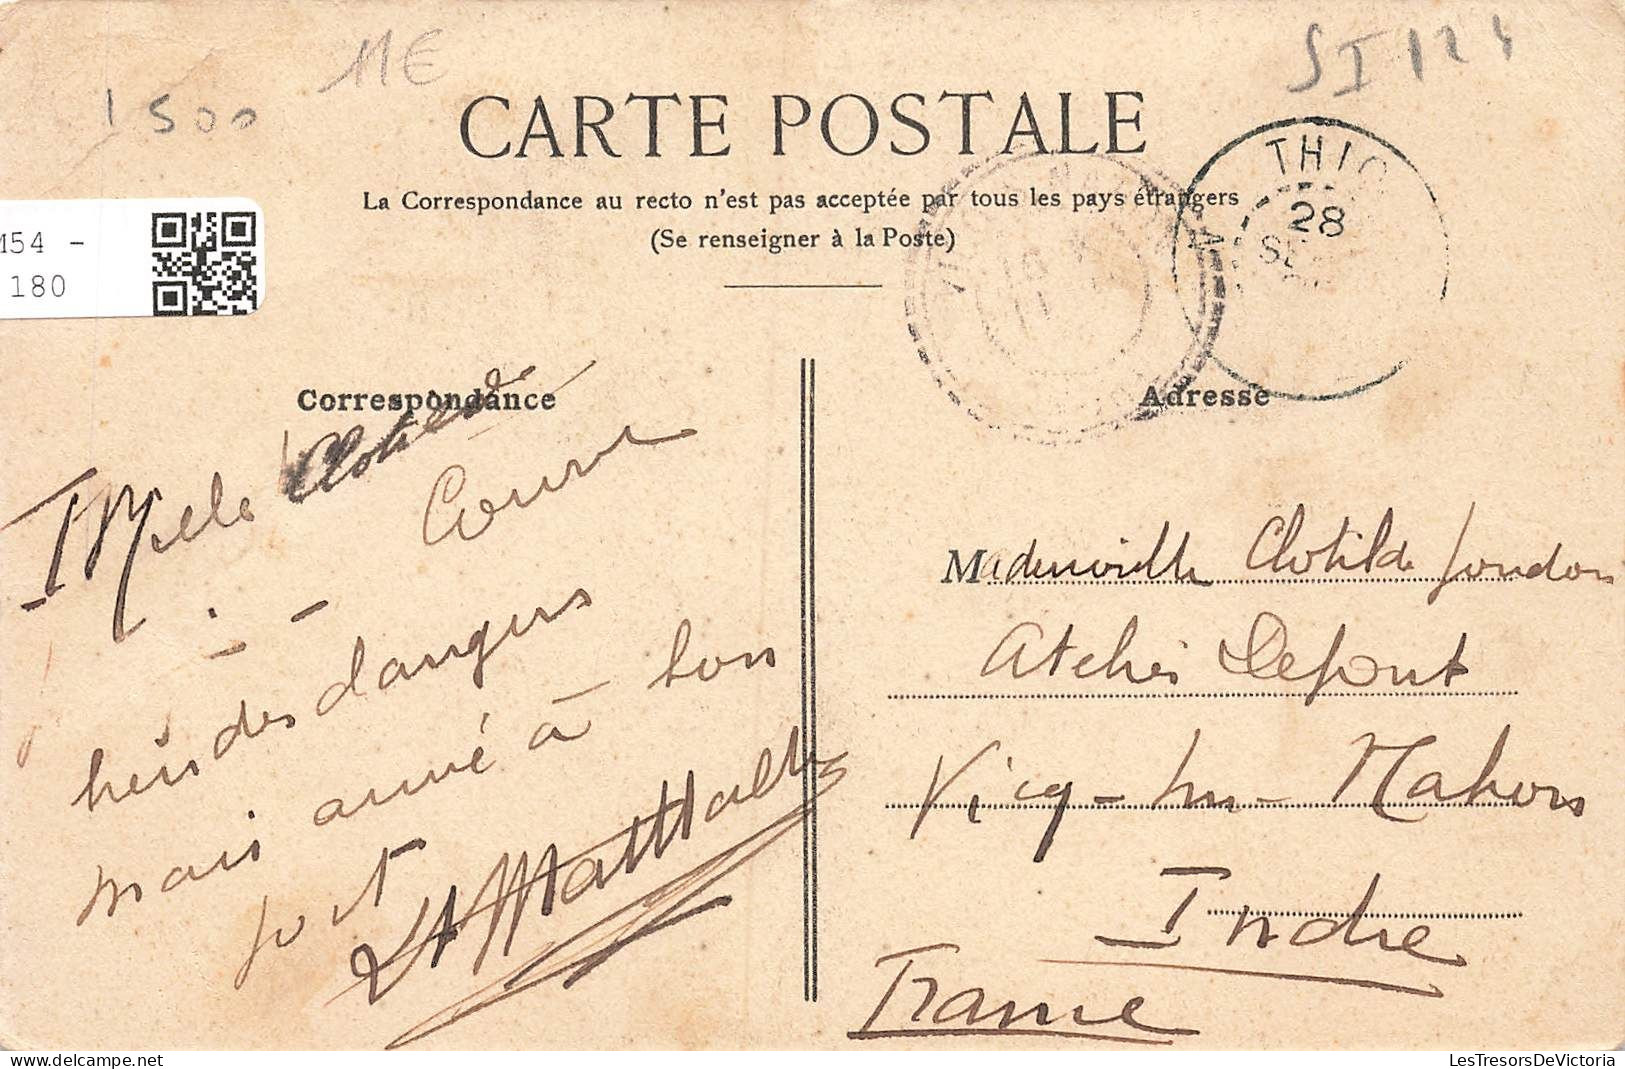 11€
1500
SI 124
CARTE POSTALE
La Correspondance au recto n'est pas acceptée par tous les pays étrangers
(Se renseigner à la Poste)
THIO
28
SE
M54 -
180
Correspondance
Adresse
Melle Clotilde
Couru
bien des dangers
mais arrivé à bon
port
Mademoiselle Clotilde Jondon
Atelier Depont
Vicq-sur-Nahon
Indre
France
LesTresorsDeVictoria